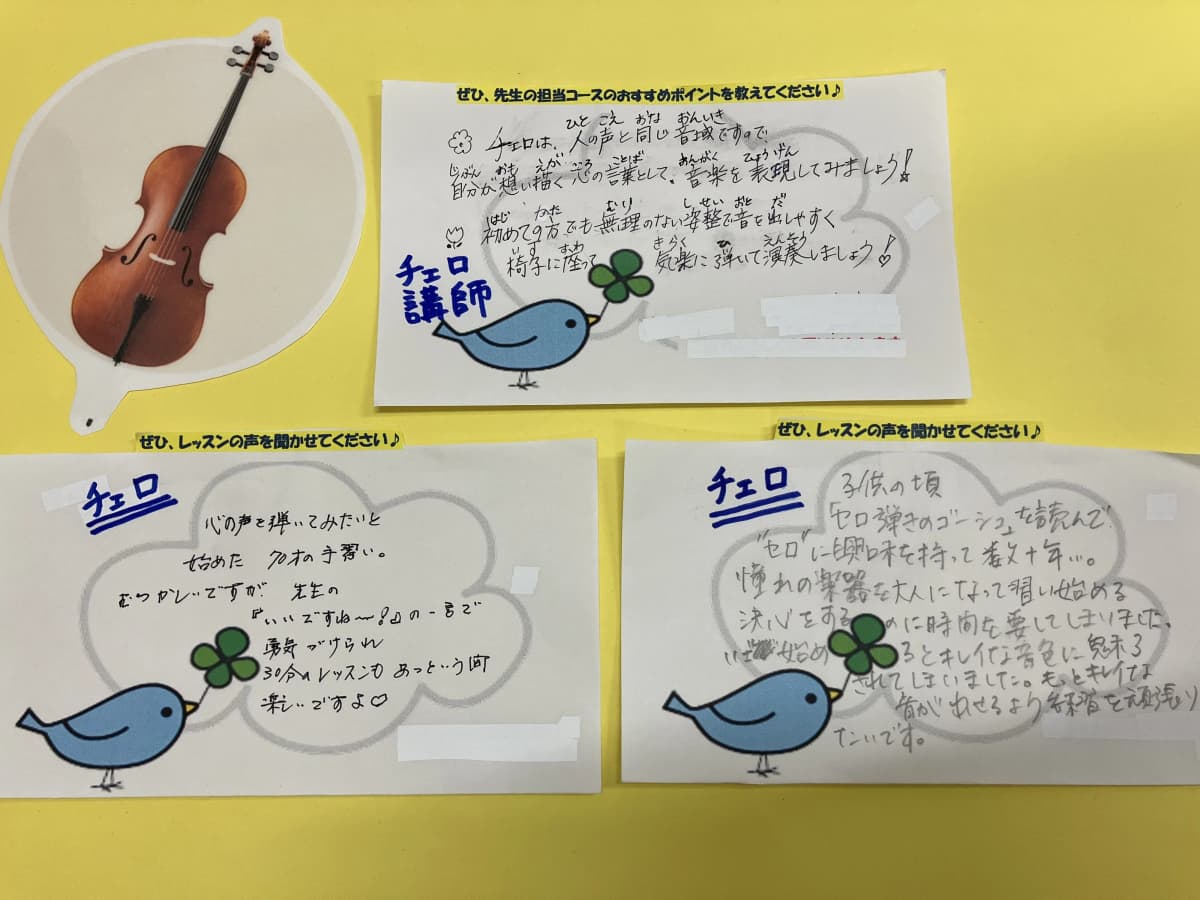 ぜひ、先生の担当コースのおすすめポイントを教えてください♪
ひと こえ おな おんいき
チェロは、人の声と同じ音域ですので、
じぶん おも えが こころ ことば おんがく ひょうげん
自分が想い描く心の言葉として、音楽を表現してみましょう!
はじ かた むり しせい おと だ
初めての方でも無理のない姿勢で音を出しやすく
いす すわ きらく ひ えんそう
椅子に座って 気楽に弾いて演奏しましょう!
チェロ
講師
ぜひ、レッスンの声を聞かせてください♪
チェロ
心の声を弾いてみたいと
始めた 70才の手習い。
むつかしいですが 先生の
『いいですね〜!』の一言で
勇気づけられ
30分のレッスンも あっという間
楽しいですよ♡
ぜひ、レッスンの声を聞かせてください♪
チェロ
子供の頃
「セロ弾きのゴーシュ」を読んで
"セロ"に興味を持って数十年…。
憧れの楽器を大人になって習い始める
決心をする のに時間を要してしまいました。
いざ 始め るとキレイな音色に魅了
されてしまいました。もっとキレイな
音が出せるよう練習を頑張り
たいです。